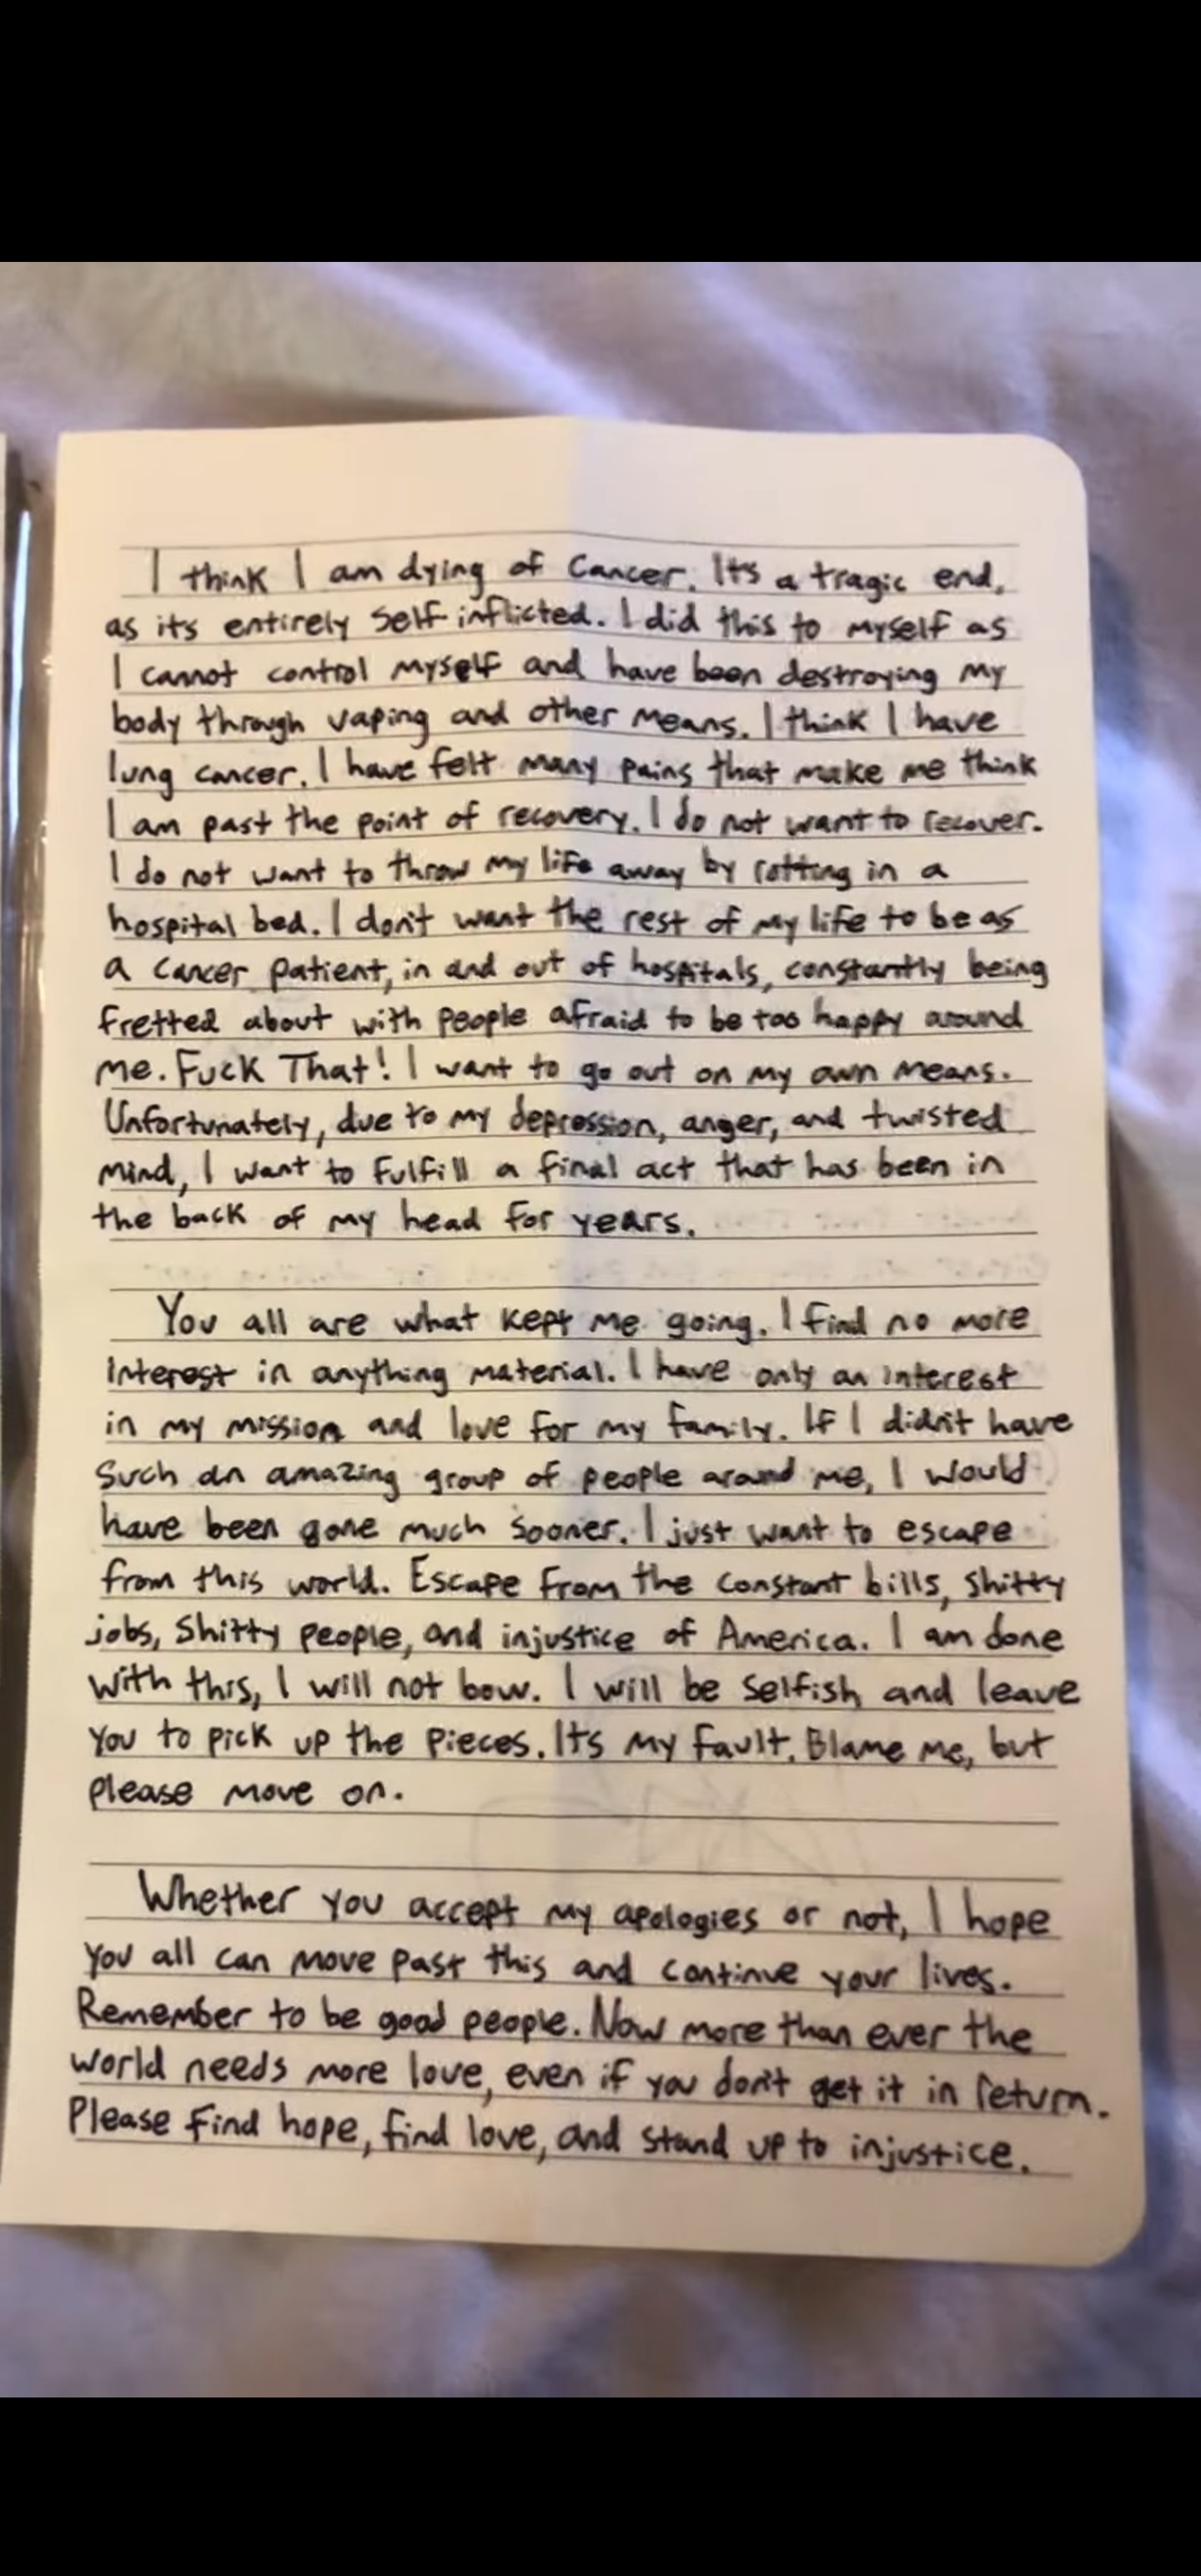 I think I am dying of Cancer. Its a tragic end,
as its entirely self inflicted. I did this to myself as
I cannot control myself and have been destroying my
body through vaping and other means. I think I have
lung cancer. I have felt many pains that make me think
I am past the point of recovery. I do not want to recover.
I do not want to throw my life away by rotting in a
hospital bed. I don't want the rest of my life to be as
a cancer patient, in and out of hospitals, constantly being
fretted about with people afraid to be too happy around
me. Fuck That! I want to go out on my own means.
Unfortunately, due to my depression, anger, and twisted
mind, I want to fulfill a final act that has been in
the back of my head for years.
You all are what kept me going. I find no more
interest in anything material. I have only an interest
in my mission and love for my family. If I didn't have
such an amazing group of people around me, I would
have been gone much sooner. I just want to escape
from this world. Escape from the constant bills, shitty
jobs, shitty people, and injustice of America. I am done
with this, I will not bow. I will be selfish and leave
you to pick up the pieces. Its my fault. Blame me, but
please move on.
Whether you accept my apologies or not, I hope
you all can move past this and continue your lives.
Remember to be good people. Now more than ever the
world needs more love, even if you don't get it in return.
Please find hope, find love, and stand up to injustice.